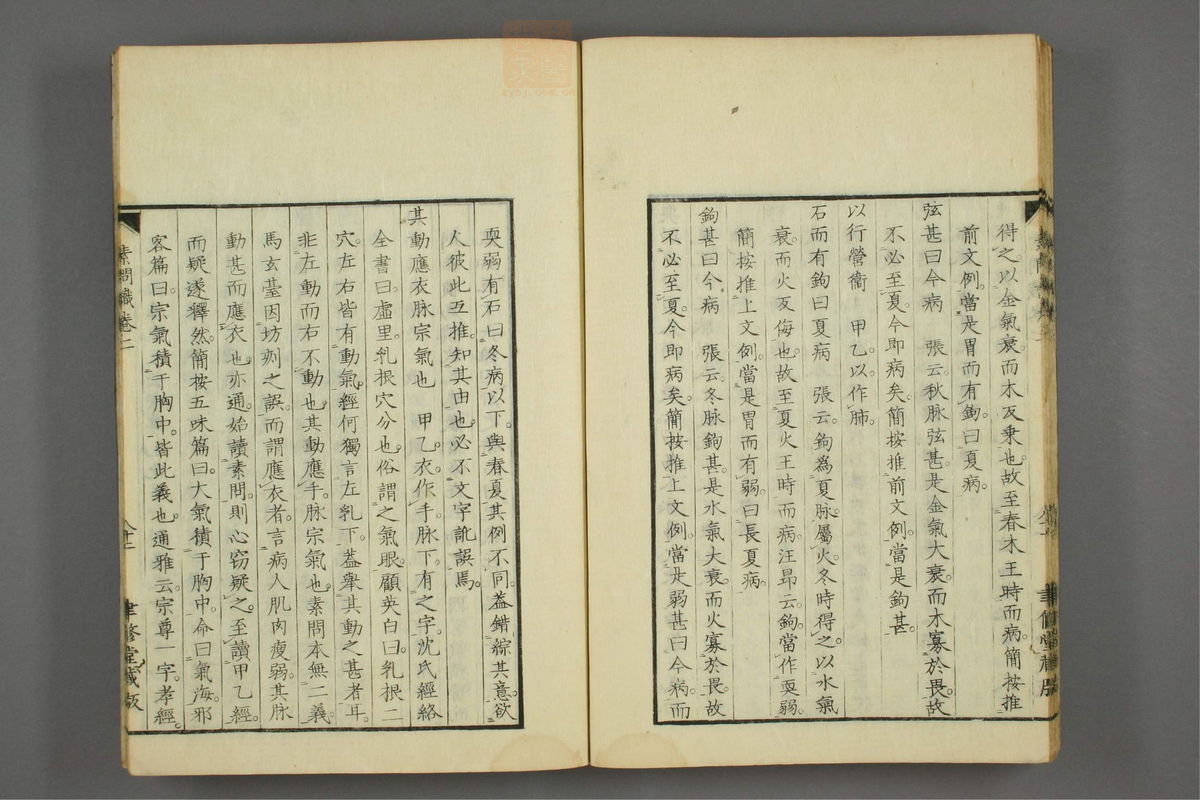 得之以金氣衰而木反乘也故至春木王時而病簡按推
前文例當是胃而有鉤曰夏病
弦甚曰今病　張云秋脉弦甚是金氣大衰而木寡於畏故
不必至夏今即病矣簡按推前文例當是鉤甚
以行營衞　甲乙以作肺
石而有鉤曰夏病　張云鉤爲夏脉屬火冬時得之以水氣
衰而火反侮也故至夏火王時而病汪昂云鉤當作耎弱
簡按推上文例當是胃而有弱曰長夏病
鉤甚曰今病　張云冬脉鉤甚是水氣大衰而火寡於畏故
不必至夏今即病矣簡按推上文例當是弱甚曰今病而
耎弱有石曰冬病以下與春夏其例不同葢錯綜其意欲
人彼此互推知其由也必不文字訛誤焉
其動應衣脉宗氣也　甲乙衣作手脉下有之字沈氏經絡
全書曰虛里乳根穴分也俗謂之氣眼顧英白曰乳根二
穴左右皆有動氣經何獨言左乳下葢舉其動之甚者耳
非左動而右不動也其動應手脉宗氣也素問本無二義
馬玄臺因坊刻之誤而謂應衣者言病人肌肉瘦弱其脉
動甚而應衣也亦通始讀素問則心竊疑之至讀甲乙經
而疑遂釋然簡按五味篇曰大氣積于胸中命曰氣海邪
客篇曰宗氣積于胸中皆此義也通雅云宗尊一字孝經
素問識卷二
八十二
聿修堂藏版